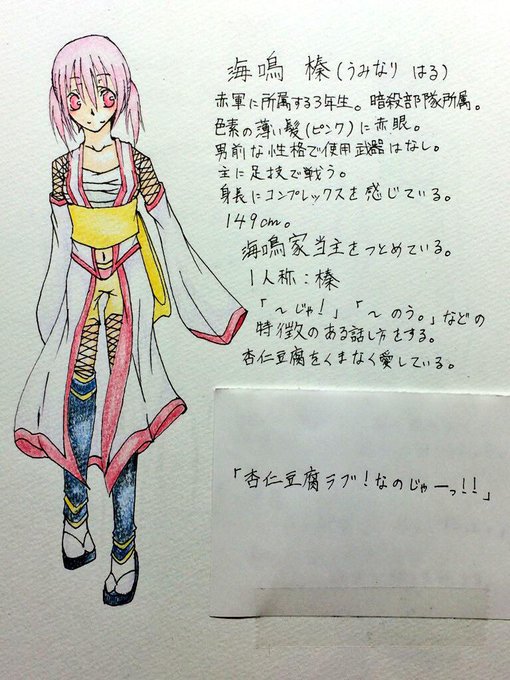 海鳴 榛(うみなり はる)
赤軍に所属する3年生。暗殺部隊所属。
色素の薄い髪(ピンク)に赤眼。
男前な性格で使用武器はなし。
主に足技で戦う。
身長にコンプレックスを感じている。
149cm。
海鳴家当主をつとめている。
1人称:榛
「~じゃ!」「~のう。」などの
特徴のある話し方をする。
杏仁豆腐をくまなく愛している。
「杏仁豆腐ラブ!なのじゃーっ!!」